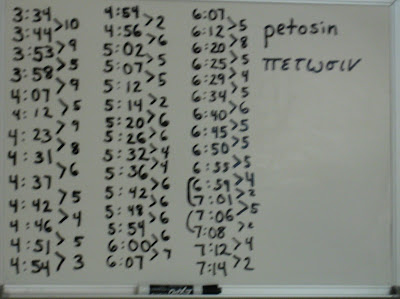 3:34 >10
3:44 >9
3:53 >5
3:58 >9
4:07 >5
4:12 >9
4:23 >8
4:31 >6
4:37 >5
4:42 >4
4:46 >5
4:51 >3
4:54
4:54 >2
4:56 >6
5:02 >5
5:07 >5
5:12 >2
5:14 >6
5:20 >6
5:26 >6
5:32 >4
5:36 >6
5:42 >6
5:48 >6
5:54 >6
6:00 >7
6:07
6:07 >5
6:12 >8
6:20 >5
6:25 >4
6:29 >5
6:34 >6
6:40 >5
6:45 >5
6:50 >5
6:55 >4
6:59 >2
7:01 >5
7:06 >2
7:08 >4
7:12 >2
7:14
petosin
πετωσιν